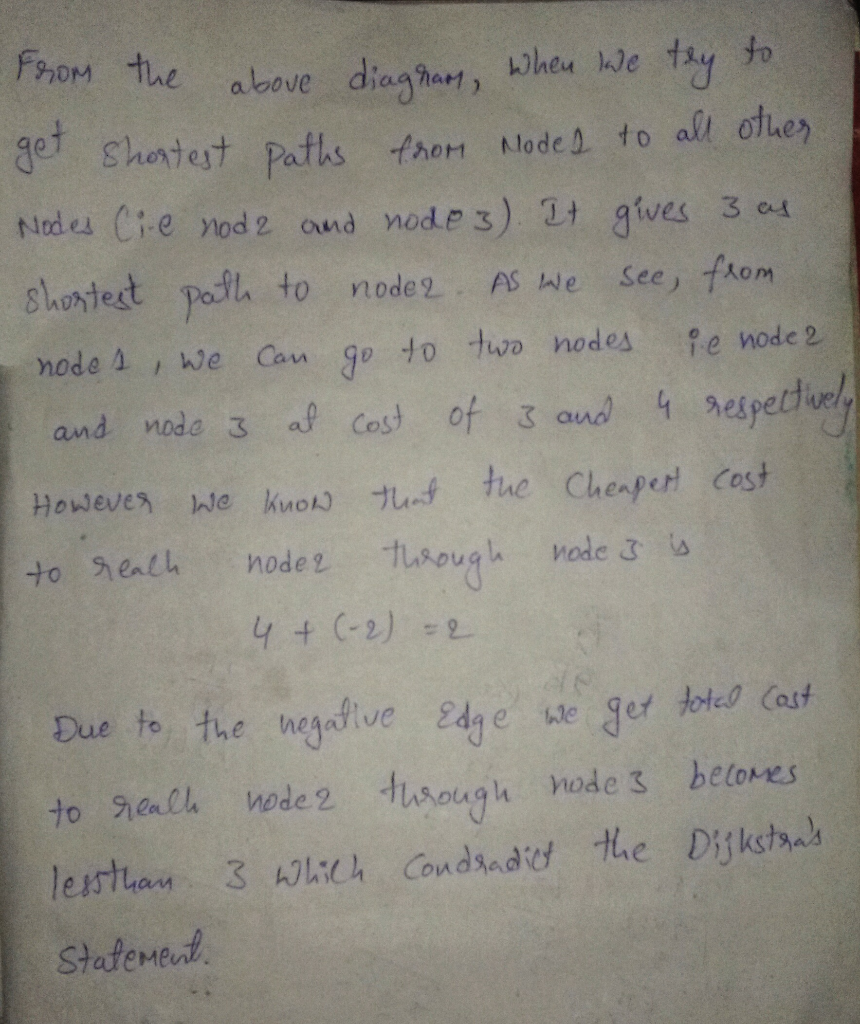 From the above diagram, When We try to
get Shortest Paths from Node1 to all other
Nodes (i.e nod2 and node3). It gives 3 as
shortest path to node2. As We see, from
node1, we can go to two nodes i.e node2
and node 3 at cost of 3 and 4 respectively
However We Know that the Cheapest cost
to reach node2 through node 3 is
4 + (-2) = 2
Due to the negative Edge we get total Cost
to reach node2 through node3 becomes
lessthan 3 Which Condradict the Dijkstra's
Statement.